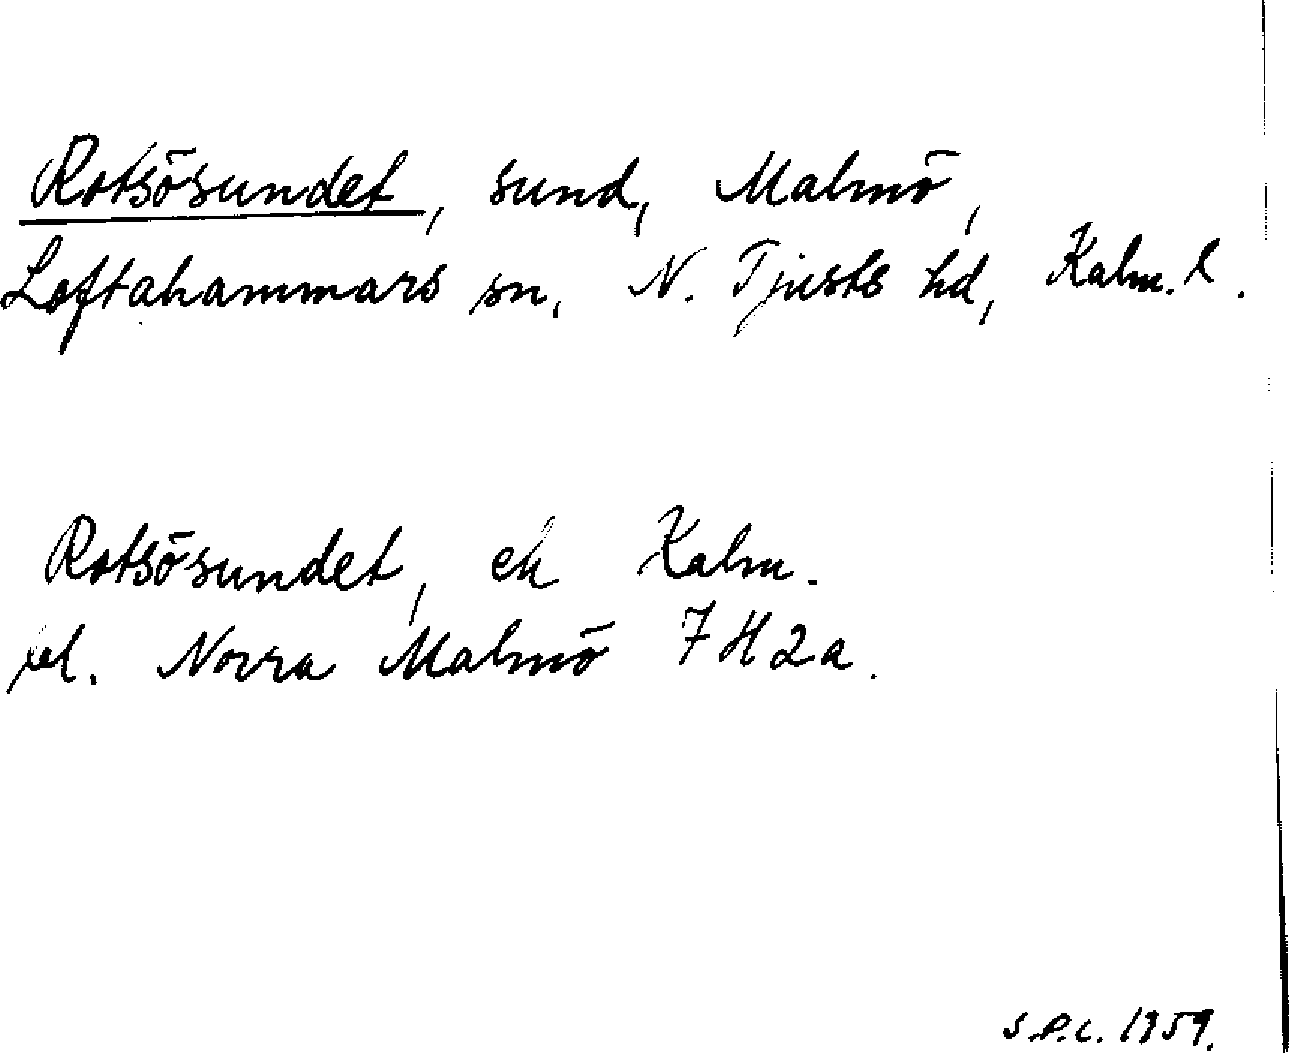 Rotsösundet, sund, Malmö,
Loftahammars sn, N. Tjusts hd, Kalm. l.
Rotsösundet, ek Kalm.
bl. Norra Malmö 7H2a.
S.P.L. 1959.